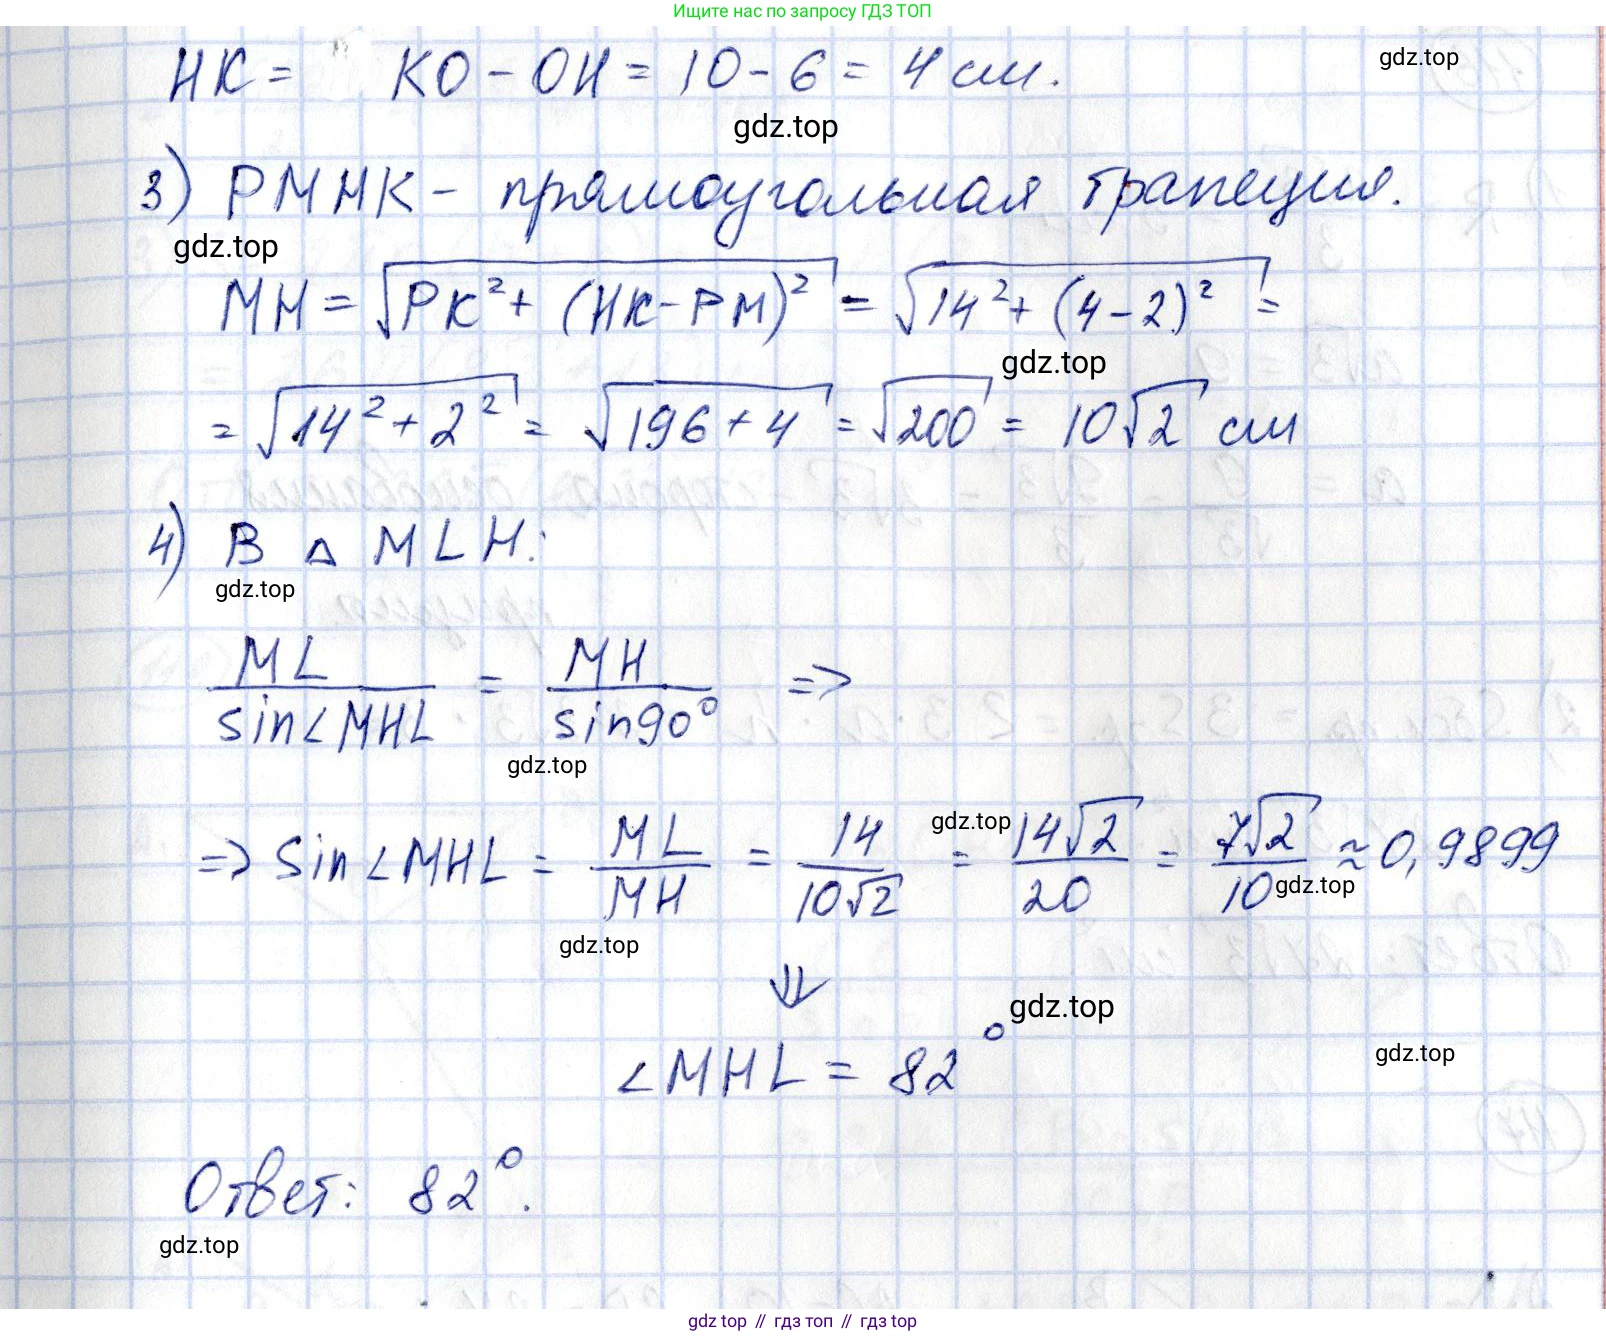 Ищите нас по запросу ГДЗ ТОП
HK = KO - OH = 10 - 6 = 4 см.
gdz.top
gdz.top
3) PMHK - прямоугольная трапеция.
gdz.top
MH = √(PK² + (HK - PM)²) = √(14² + (4 - 2)²) =
gdz.top
= √(14² + 2²) = √(196 + 4) = √200 = 10√2 см
4) В △ MLH:
gdz.top
ML/sin∠MHL = MH/sin90° =>
gdz.top
=> sin∠MHL = ML/MH = 14/10√2 = 14√2/20 = 7√2/10 ≈ 0,9899
gdz.top
gdz.top
gdz.top
⇓
gdz.top
∠MHL = 82°
gdz.top
Ответ: 82°.
gdz.top
gdz.top // гдз топ // гдз top